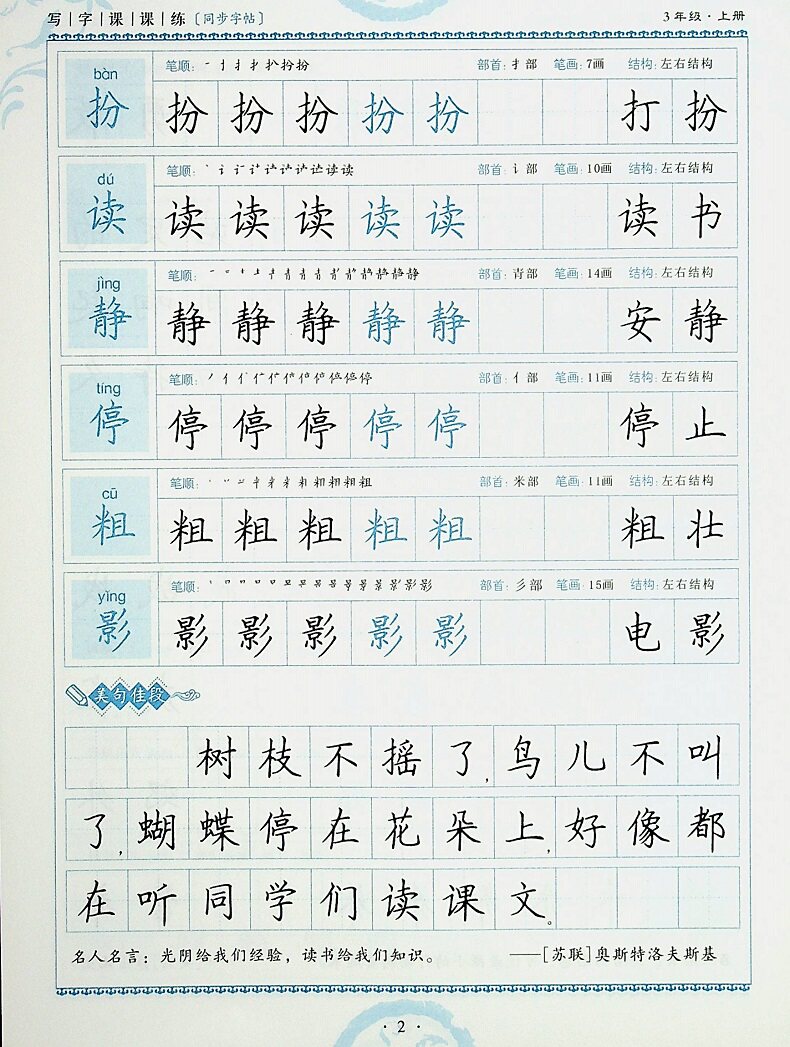 写|字|课|课|练〔同步字帖〕 3年级·上册
bàn 笔顺: 部首:扌部 笔画:7画 结构:左右结构
扮 扮 扮 扮 扮 扮 打 扮
dú 笔顺: 部首:讠部 笔画:10画 结构:左右结构
读 读 读 读 读 读 读 书
jìng 笔顺: 部首:青部 笔画:14画 结构:左右结构
静 静 静 静 静 静 安 静
tíng 笔顺: 部首:亻部 笔画:11画 结构:左右结构
停 停 停 停 停 停 停 止
cū 笔顺: 部首:米部 笔画:11画 结构:左右结构
粗 粗 粗 粗 粗 粗 粗 壮
yǐng 笔顺: 部首:彡部 笔画:15画 结构:左右结构
影 影 影 影 影 影 电 影
美句佳段
树枝不摇了,鸟儿不叫
了,蝴蝶停在花朵上,好像都
在听同学们读课文。
名人名言:光阴给我们经验,读书给我们知识。 ——[苏联]奥斯特洛夫斯基
·2·